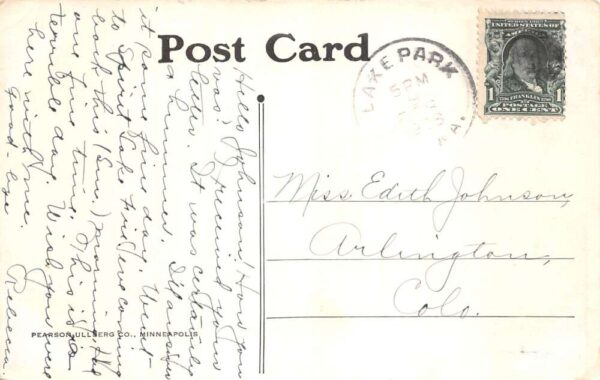 Post Card
LAKE PARK
5 PM
IA.
SERIES 1902
UNITED STATES OF
AMERICA
1 FRANKLIN 1
POSTAGE
ONE CENT
Miss. Edith Johnson,
Arlington,
Colo.
Hello Johnson! How you
was? I received your
letter. It was certainly
a hummer. I'll answer
it some fine day. Went
to Spirit Lake Fri. eve coming
back this (Sun.) morning. Had
one fine time. This is a
terrible day. Wish you were
here with me.
Good-bye
Rebecca.
PEARSON ULLBERG CO., MINNEAPOLIS